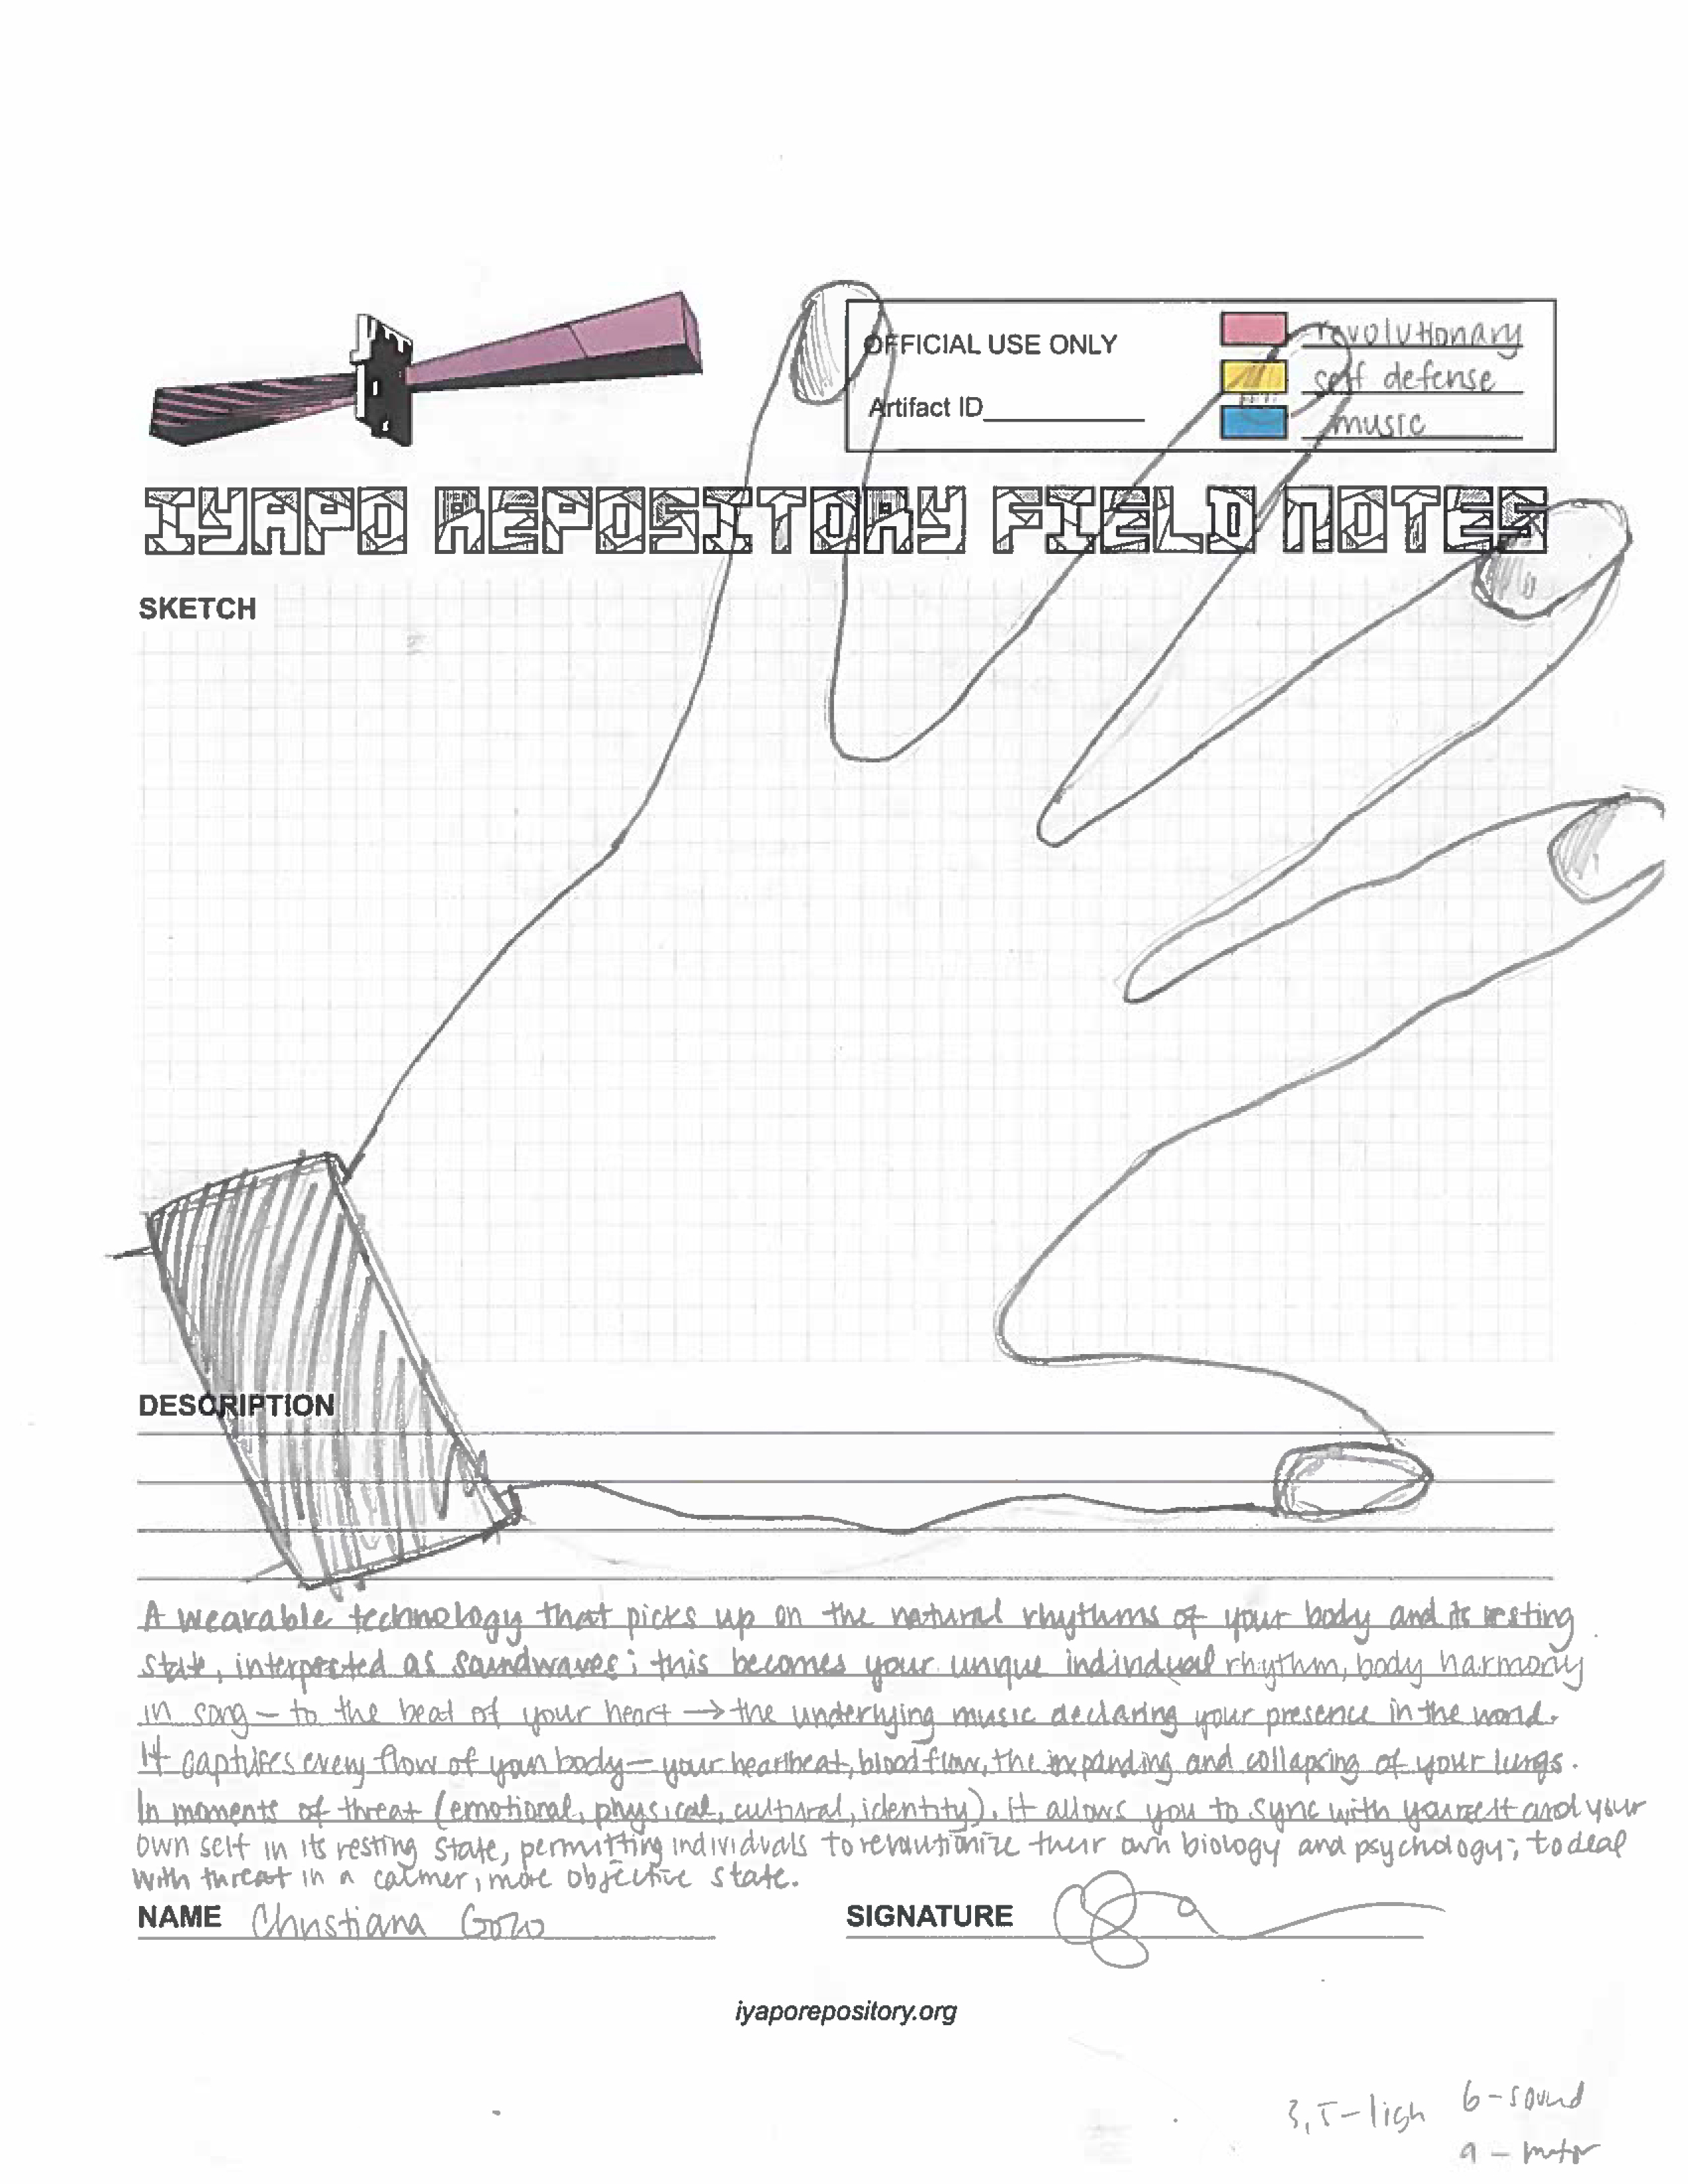 OFFICIAL USE ONLY
Artifact ID
revolutionary
self defense
music
IYAPO REPOSITORY FIELD NOTES
SKETCH
DESCRIPTION
A wearable technology that picks up on the natural rhythms of your body and its resting
state, interpreted as soundwaves; this becomes your unique individual rhythm, body harmony
in song – to the beat of your heart → the underlying music declaring your presence in the world.
It captures every flow of your body – your heartbeat, blood flow, the expanding and collapsing of your lungs.
In moments of threat (emotional, physical, cultural, identity), it allows you to sync with yourself and your
own self in its resting state, permitting individuals to revolutionize their own biology and psychology; to deal
with threat in a calmer, more objective state.
NAME Christiana Gozo
SIGNATURE
iyaporepository.org
6 – sound
3, 5 – ligh
9 – motor